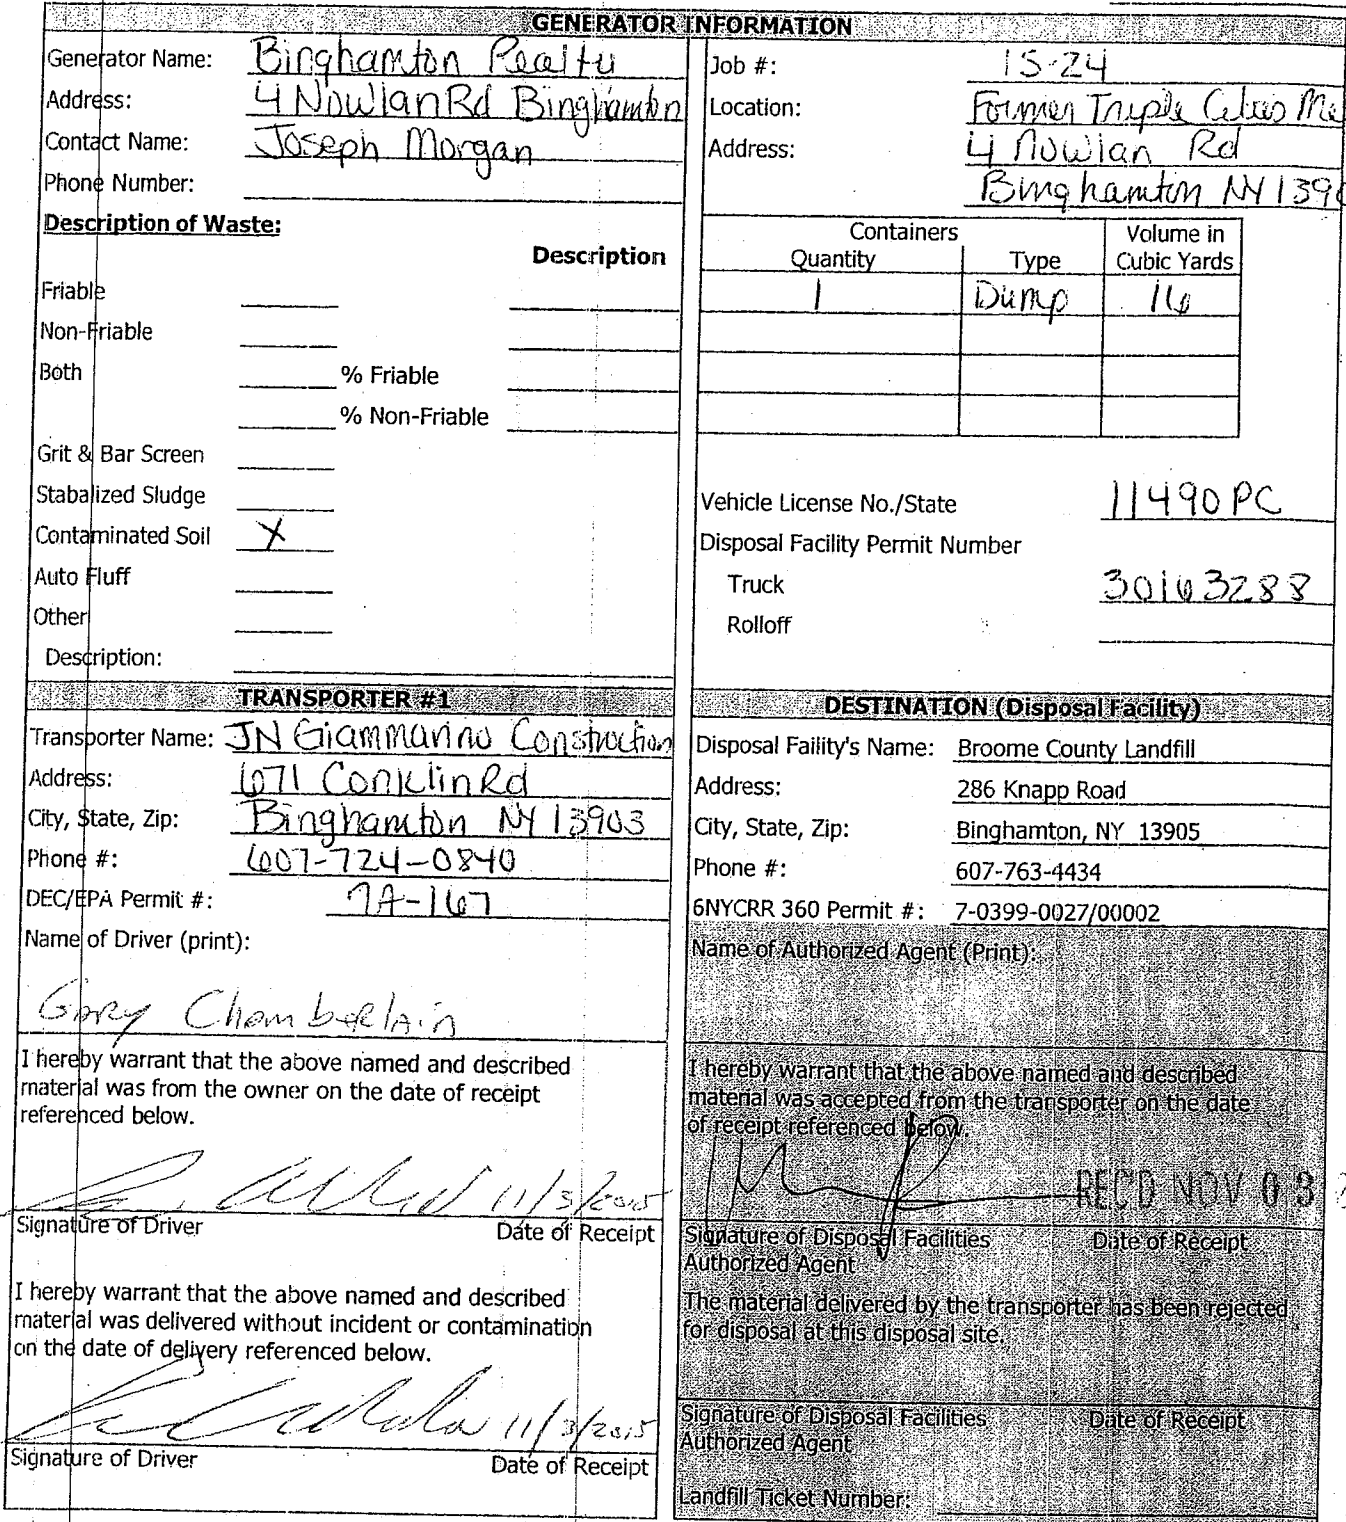 GENERATOR INFORMATION
Generator Name: Binghamton Realty
Address: 4 Nowlan Rd Binghamton
Contact Name: Joseph Morgan
Phone Number:
Job #: 15-24
Location: Former Triple Cities Me
Address: 4 Nowlan Rd
Binghamton NY 1390
Description of Waste:
Description
Friable
Non-Friable
Both % Friable
% Non-Friable
Grit & Bar Screen
Stabalized Sludge
Contaminated Soil X
Auto Fluff
Other
Description:
Containers Volume in
Quantity Type Cubic Yards
1 Dump 16
Vehicle License No./State 11490PC
Disposal Facility Permit Number
Truck 30163288
Rolloff
TRANSPORTER #1
Transporter Name: JN Giammarino Construction
Address: 671 Conklin Rd
City, State, Zip: Binghamton NY 13903
Phone #: 607-724-0840
DEC/EPA Permit #: 7A-167
Name of Driver (print):
Gary Chamberlain
I hereby warrant that the above named and described
material was from the owner on the date of receipt
referenced below.
11/3/2015
Signature of Driver Date of Receipt
I hereby warrant that the above named and described
material was delivered without incident or contamination
on the date of delivery referenced below.
11/3/2015
Signature of Driver Date of Receipt
DESTINATION (Disposal Facility)
Disposal Faility's Name: Broome County Landfill
Address: 286 Knapp Road
City, State, Zip: Binghamton, NY 13905
Phone #: 607-763-4434
6NYCRR 360 Permit #: 7-0399-0027/00002
Name of Authorized Agent (Print):
I hereby warrant that the above named and described
material was accepted from the transporter on the date
of receipt referenced below.
REC'D NOV 03
Signature of Disposal Facilities Date of Receipt
Authorized Agent
The material delivered by the transporter has been rejected
for disposal at this disposal site.
Signature of Disposal Facilities Date of Receipt
Authorized Agent
Landfill Ticket Number: